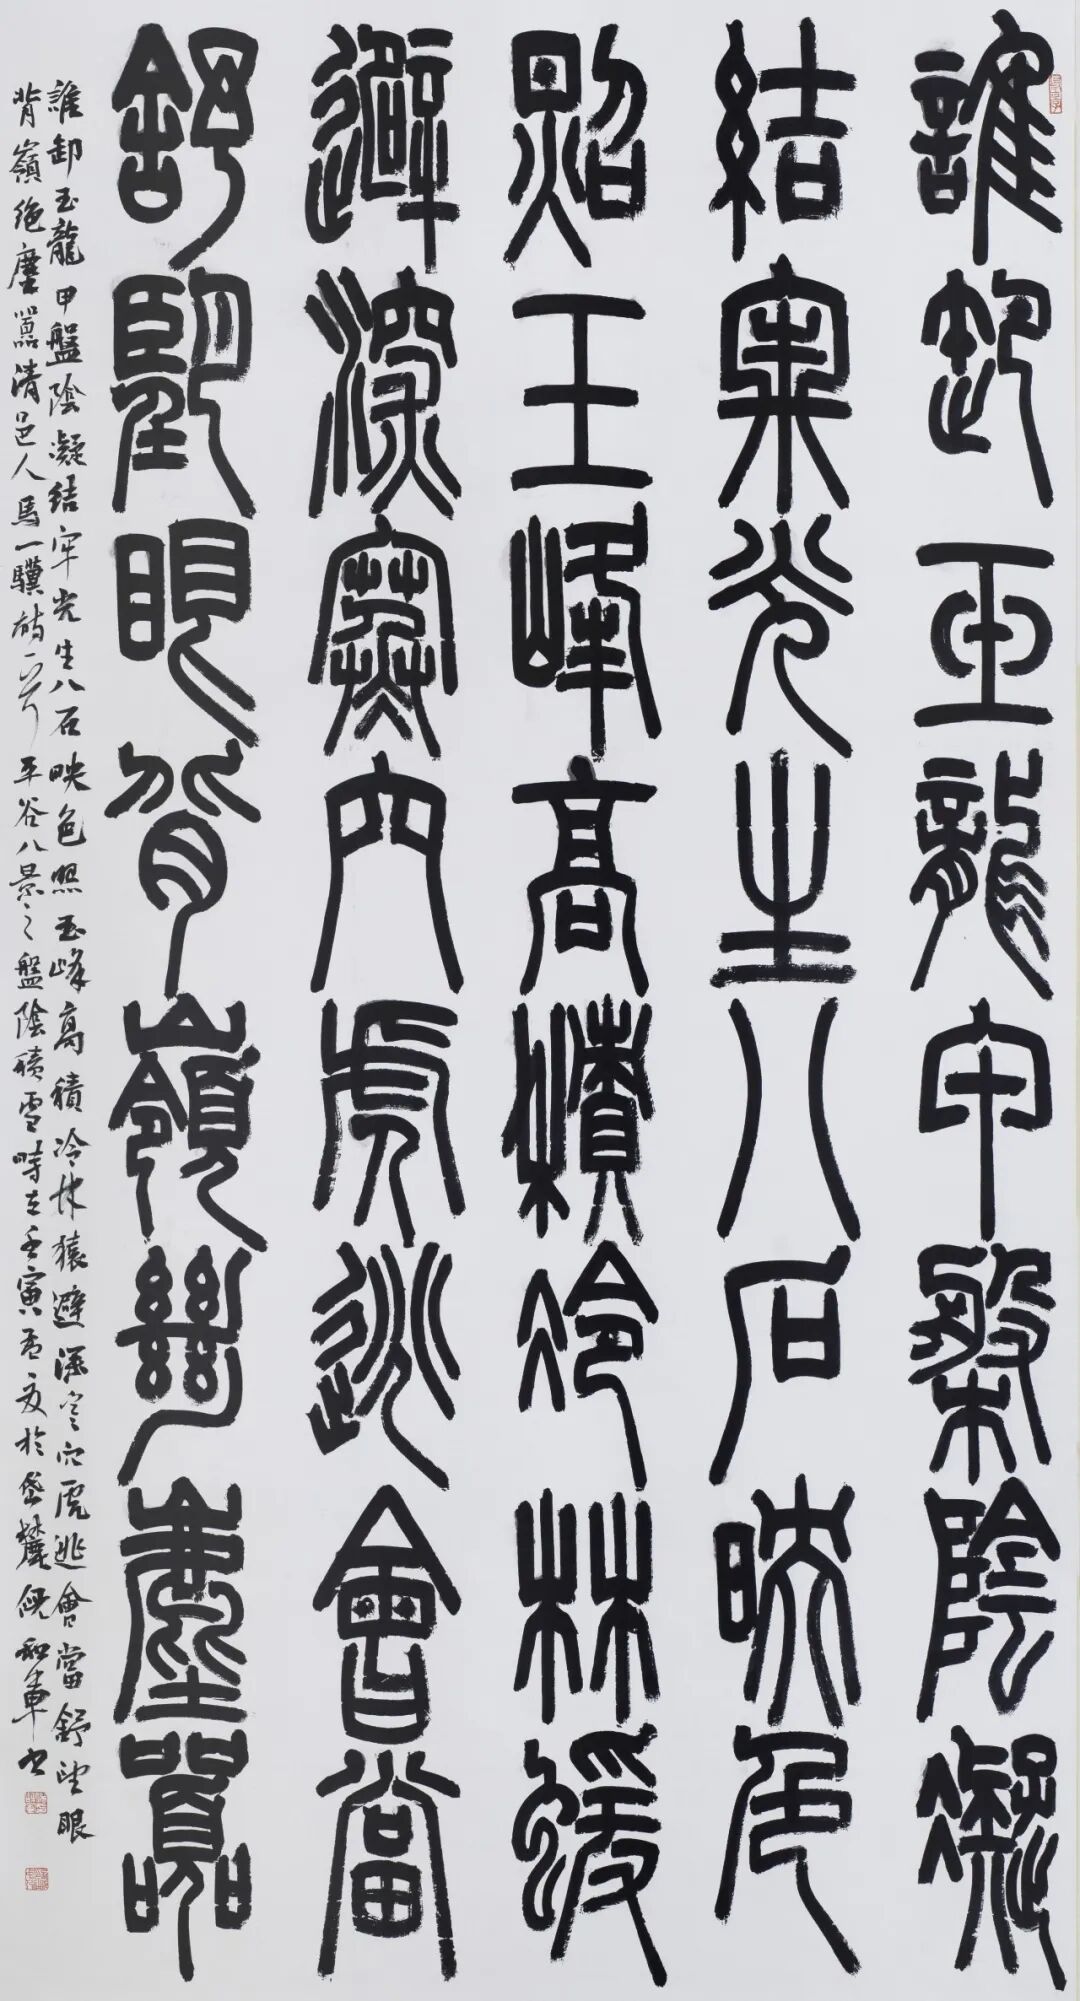 誰卸玉龍甲盤陰凝
結牢光生八石映色
照玉峰高積冷林猨
避深寒穴虎逃會當
舒望眼背嶺絕塵囂
誰卸玉龍甲盤陰凝結牢光生八石映色照玉峰高積冷林猿避深寒穴虎逃會當舒望眼
背嶺絕塵囂清邑人馬一驥詩一首平谷八景之盤陰積雪時在壬寅孟夏於岱麓 和軍書